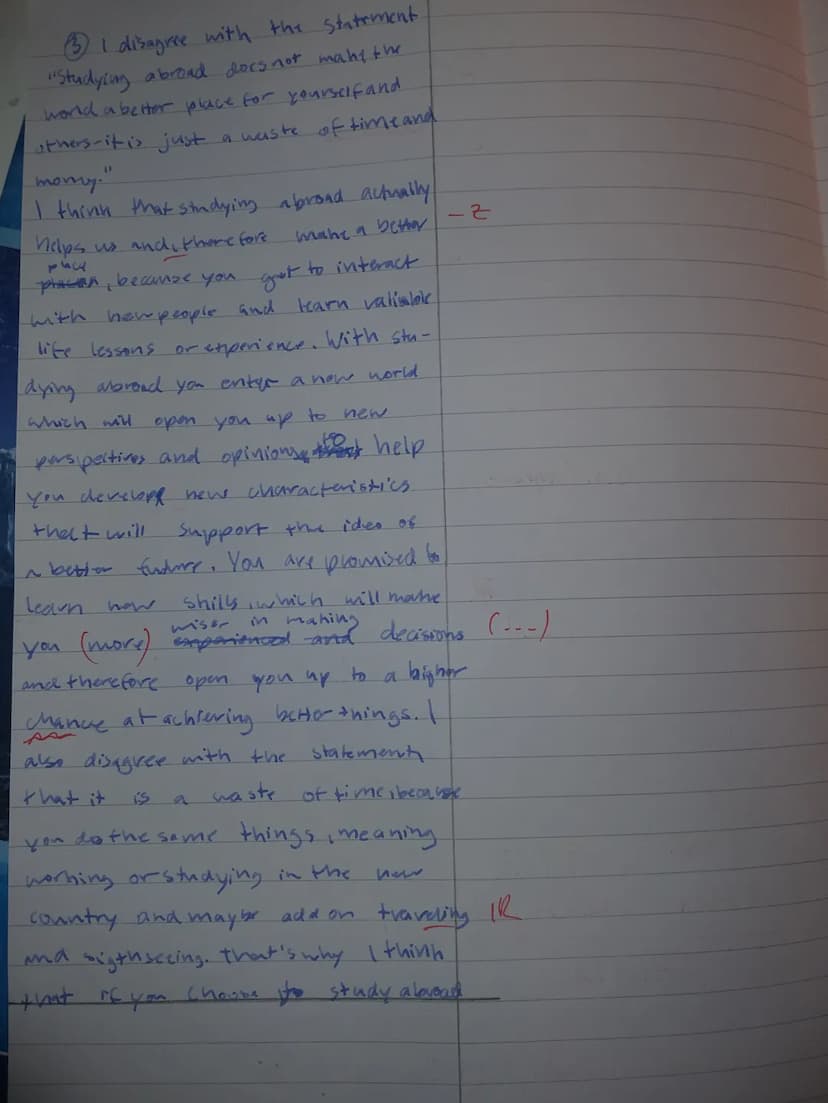 ③ I disagree with the statement
"Studying abroad does not make the
world a better place for yourself and
others-it is just a waste of time and
money."
I think that studying abroad actually
helps us and, therefore make a better -Z
place
, because you get to interact
with new people and learn valiable
life lessons or experience. With stu-
dying abroad you enter a new world
which will open you up to new
perspectives and opinions to help
you develope new characteristics
that will support the idea of
a better future. You are promised to
learn new skills, which will make
wiser in making
you (more) experienced and decisions (---)
and therefore open you up to a higher
chance at achieving better things. I
also disagree with the statement,
that it is a waste of time, because
you do the same things, meaning
working or studying in the new
country and maybe add on traveling IR
and sigthseeing. That's why I think
that if you choose to study abroad